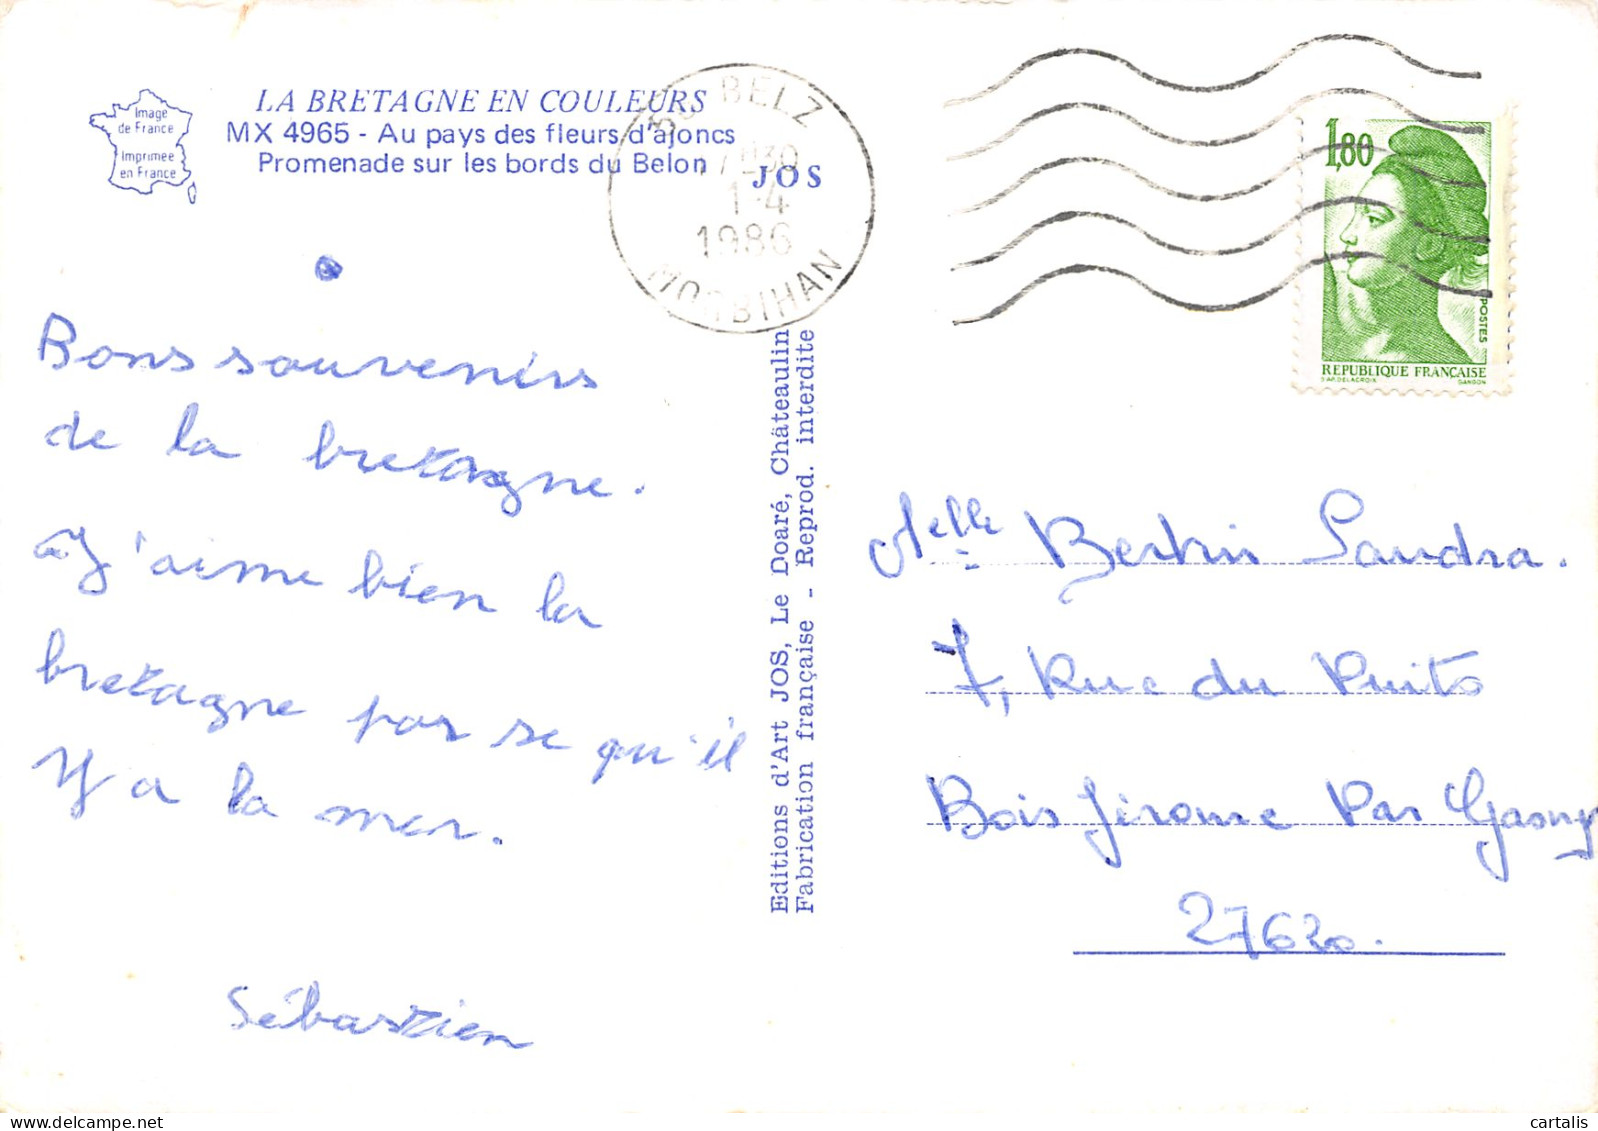 Image
de France
Imprimée
en France
LA BRETAGNE EN COULEURS
MX 4965 - Au pays des fleurs d'ajoncs
Promenade sur les bords du Belon
JOS
56 BELZ
17H30
1-4
1986
MORBIHAN
1,80
POSTES
REPUBLIQUE FRANÇAISE
D'AP. DELACROIX GANDON
Bons souvenirs
de la bretagne.
J'aime bien la
bretagne par se qu'il
Y a la mer.
Sébastien
Editions d'Art JOS, Le Doaré, Châteaulin
Fabrication française - Reprod. interdite
Melle Bertin Sandra.
7, Rue du Puits
Bois Jérome Par Gasny
27620.
cartalis